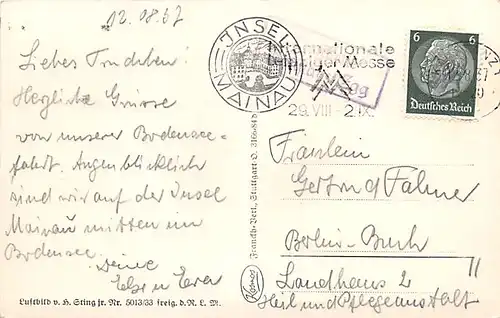 12.08.37
Liebes Trudchen!
Herzliche Grüsse
von unserer Bodensee-
fahrt. Augenblicklich
sind wir auf der Insel
Mainau mitten im
Bodensee.
Deine
Else u
Luftbild v. H. Sting jr. Nr. 5013/33 freig. d. R. L. M.
INSEL
MAINAU
Franckh-Verl., Stuttgart-O.
Kosmos
Internationale
Leipziger Messe
29. VIII - 2. IX.
6 6
Deutsches Reich
Fräulein
Gertrud
Berlin-Buch
Landhaus 2
Heil und Pflegeanstalt